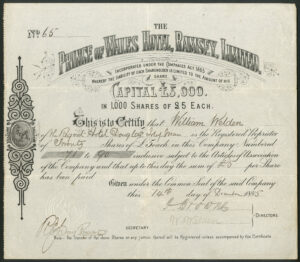 No 65
THE
PRINCE OF WALES HOTEL, RAMSEY, LIMITED.
INCORPORATED UNDER THE COMPANIES ACT 1865
WHEREBY THE LIABILITY OF EACH SHAREHOLDER IS LIMITED TO THE AMOUNT OF HIS
SHARE
CAPITAL £5,000.
IN 1,000 SHARES OF £5 EACH.
This is to Certify that William Welden
of the Hotel Douglas Isle of Man is the Registered Proprietor
of Twenty Shares of £5 each in this Company Numbered
to inclusive subject to the Articles of Association
of the Company and that up to this day the sum of £5 per Share
has been paid
Given under the Common Seal of the said Company
this 14th day of 1895
DIRECTORS
SECRETARY
Note. No Transfer of the above Shares or any portion thereof will be Registered unless accompanied by this Certificate.